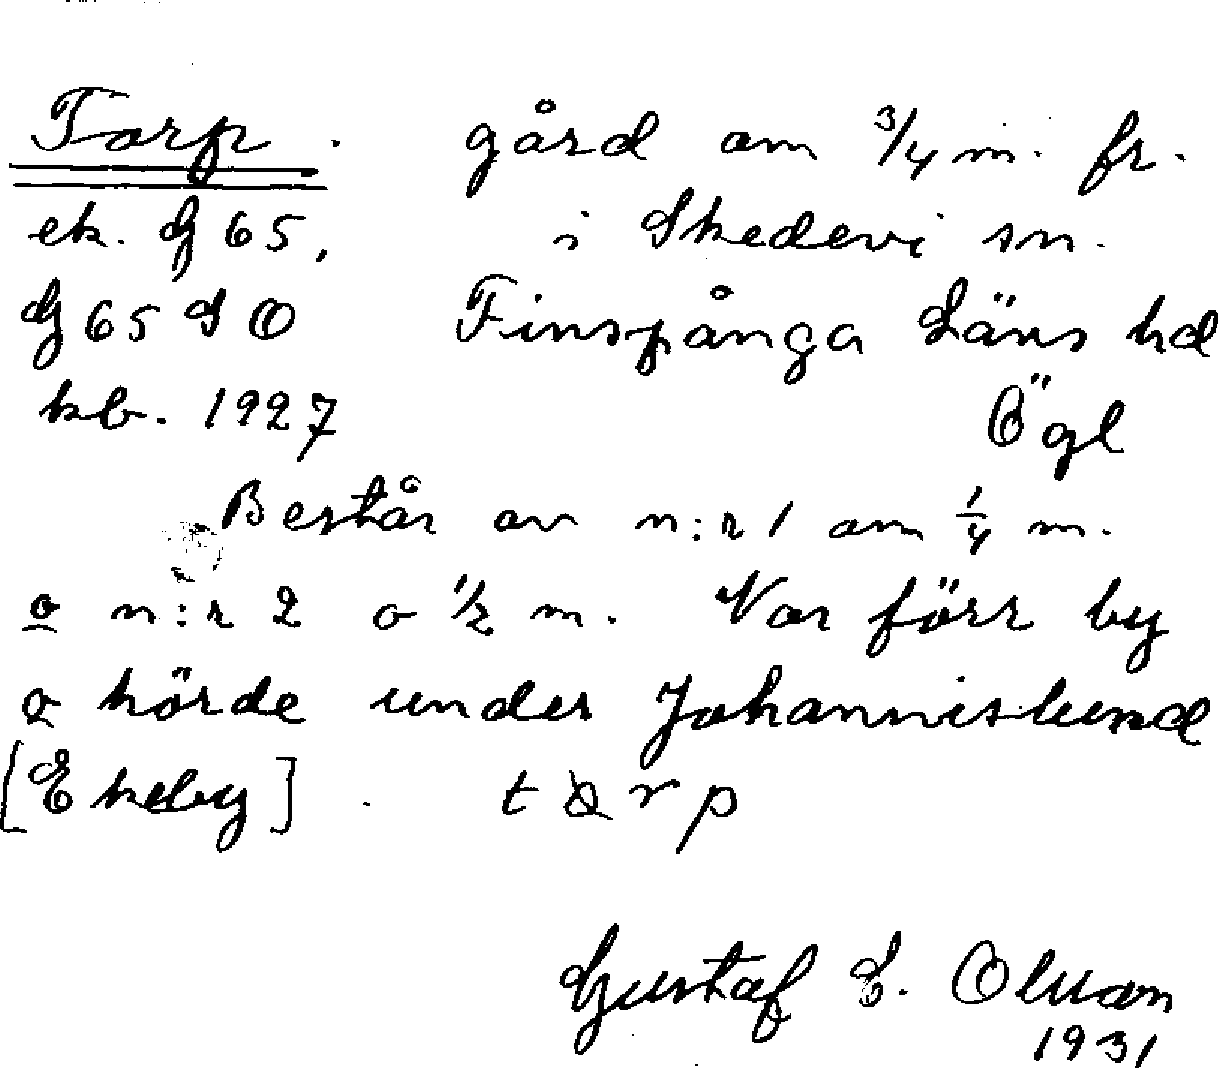 Torp. gård om 3/4 m. fr.
ek. G 65, i Skedevi sn.
G 65 S O Finspånga Läns hd
kb. 1927 Ögl
Består av n:r 1 om 1/4 m.
o n:r 2 o 1/2 m. Var förr by
o hörde under Johannislund
[Ekeby] t r p
Gustaf E. Olsson
1931